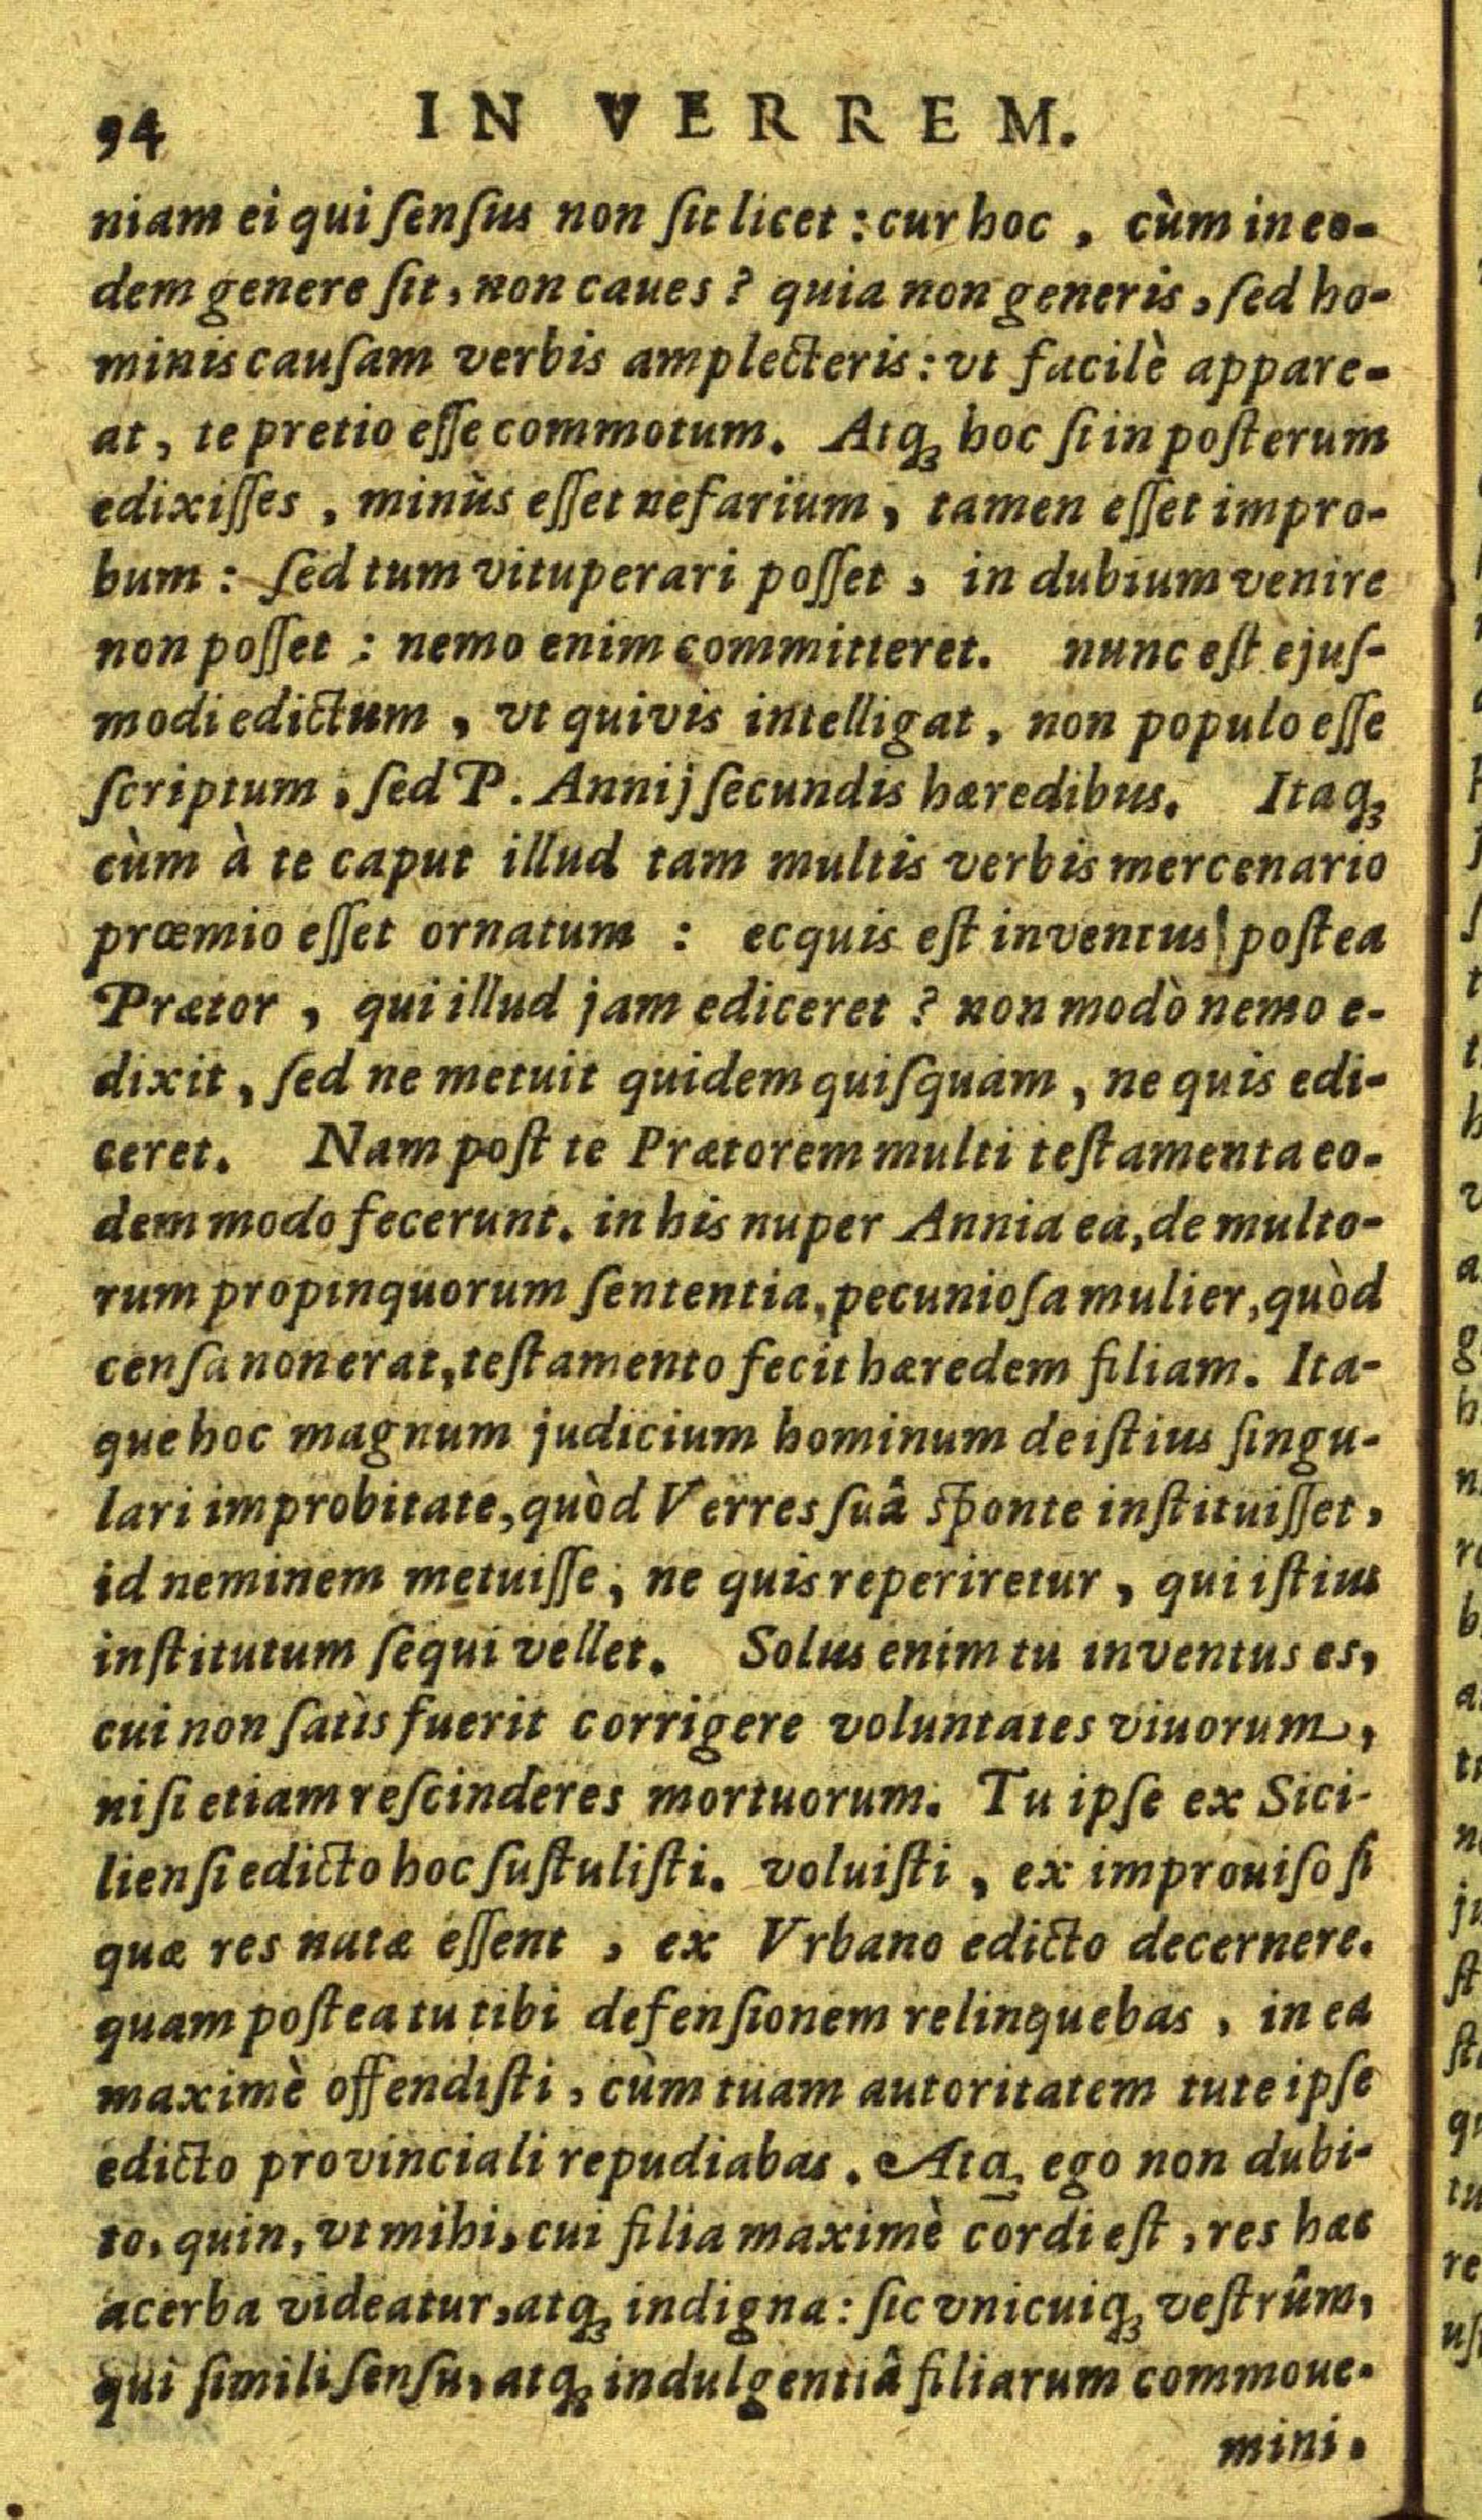 94 IN VERREM.
niam ei qui ſenſus non ſit licet : cur hoc , cùm in eo-
dem genere ſit, non caues ? quia non generis, ſed ho-
minis cauſam verbis amplecteris : vt facilè appare-
at, te pretio eſſe commotum. Atq; hoc ſi in poſterum
edixiſſes , minùs eſſet nefarium, tamen eſſet impro-
bum : ſed tum vituperari poſſet , in dubium venire
non poſſet : nemo enim committeret. nunc eſt ejuſ-
modi edictum , vt quivis intelligat, non populo eſſe
ſcriptum, ſed P. Annij ſecundis hæredibus. Itaq;
cùm à te caput illud tam multis verbis mercenario
prœmio eſſet ornatum : ecquis eſt inventus poſtea
Prætor , qui illud jam ediceret ? non modò nemo e-
dixit, ſed ne metuit quidem quiſquam, ne quis edi-
ceret. Nam poſt te Prætorem multi teſtamenta eo-
dem modo fecerunt. in his nuper Annia ea, de multo-
rum propinquorum ſententia, pecunioſa mulier, quòd
cenſa non erat, teſtamento fecit hæredem filiam. Ita-
que hoc magnum judicium hominum de iſtius ſingu-
lari improbitate, quòd Verres ſuâ ſponte inſtituiſſet,
id neminem metuiſſe, ne quis reperiretur , qui iſtius
inſtitutum ſequi vellet. Solus enim tu inventus es,
cui non ſatìs fuerit corrigere voluntates viuorum,
niſi etiam reſcinderes mortuorum. Tu ipſe ex Sici-
lienſi edicto hoc ſuſtuliſti. voluiſti , ex improuiſo ſi
quæ res natæ eſſent , ex Vrbano edicto decernere.
quam poſtea tu tibi defenſionem relinquebas , in ea
maximè offendiſti, cùm tuam autoritatem tute ipſe
edicto provinciali repudiabas. Atq; ego non dubi-
to, quin, vt mihi, cui filia maximè cordi eſt, res hæc
acerba videatur, atq; indigna : ſic vnicuiq; veſtrûm,
qui ſimili ſenſu, atq; indulgentiâ filiarum commoue-
mini.